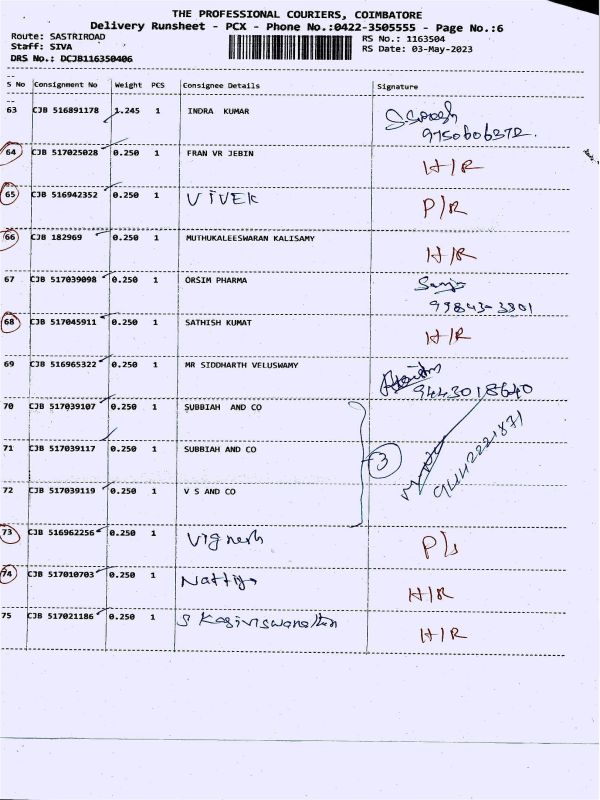 THE PROFESSIONAL COURIERS, COIMBATORE
Delivery Runsheet - PCX - Phone No.:0422-3505555 - Page No.:6
Route: SASTRIROAD
RS No.: 1163504
Staff: SIVA
RS Date: 03-May-2023
DRS No.: DCJB116350406
S No Consignment No Weight PCS Consignee Details Signature
63 CJB 516891178 1.245 1 INDRA KUMAR
9750606372.
64 CJB 517025028 0.250 1 FRAN VR JEBIN H/R
65 CJB 516942352 0.250 1 VIVEK P/R
66 CJB 182969 0.250 1 MUTHUKALEESWARAN KALISAMY H/R
67 CJB 517039098 0.250 1 ORSIM PHARMA
99843-3301
68 CJB 517045911 0.250 1 SATHISH KUMAT H/R
69 CJB 516965322 0.250 1 MR SIDDHARTH VELUSWAMY
9443018640
70 CJB 517039107 0.250 1 SUBBIAH AND CO
71 CJB 517039117 0.250 1 SUBBIAH AND CO 3 9442221871
72 CJB 517039119 0.250 1 V S AND CO
73 CJB 516962256 0.250 1 Vignesh
74 CJB 517010703 0.250 1 H/R
75 CJB 517021186 0.250 1 S Kasiviswanathan H/R